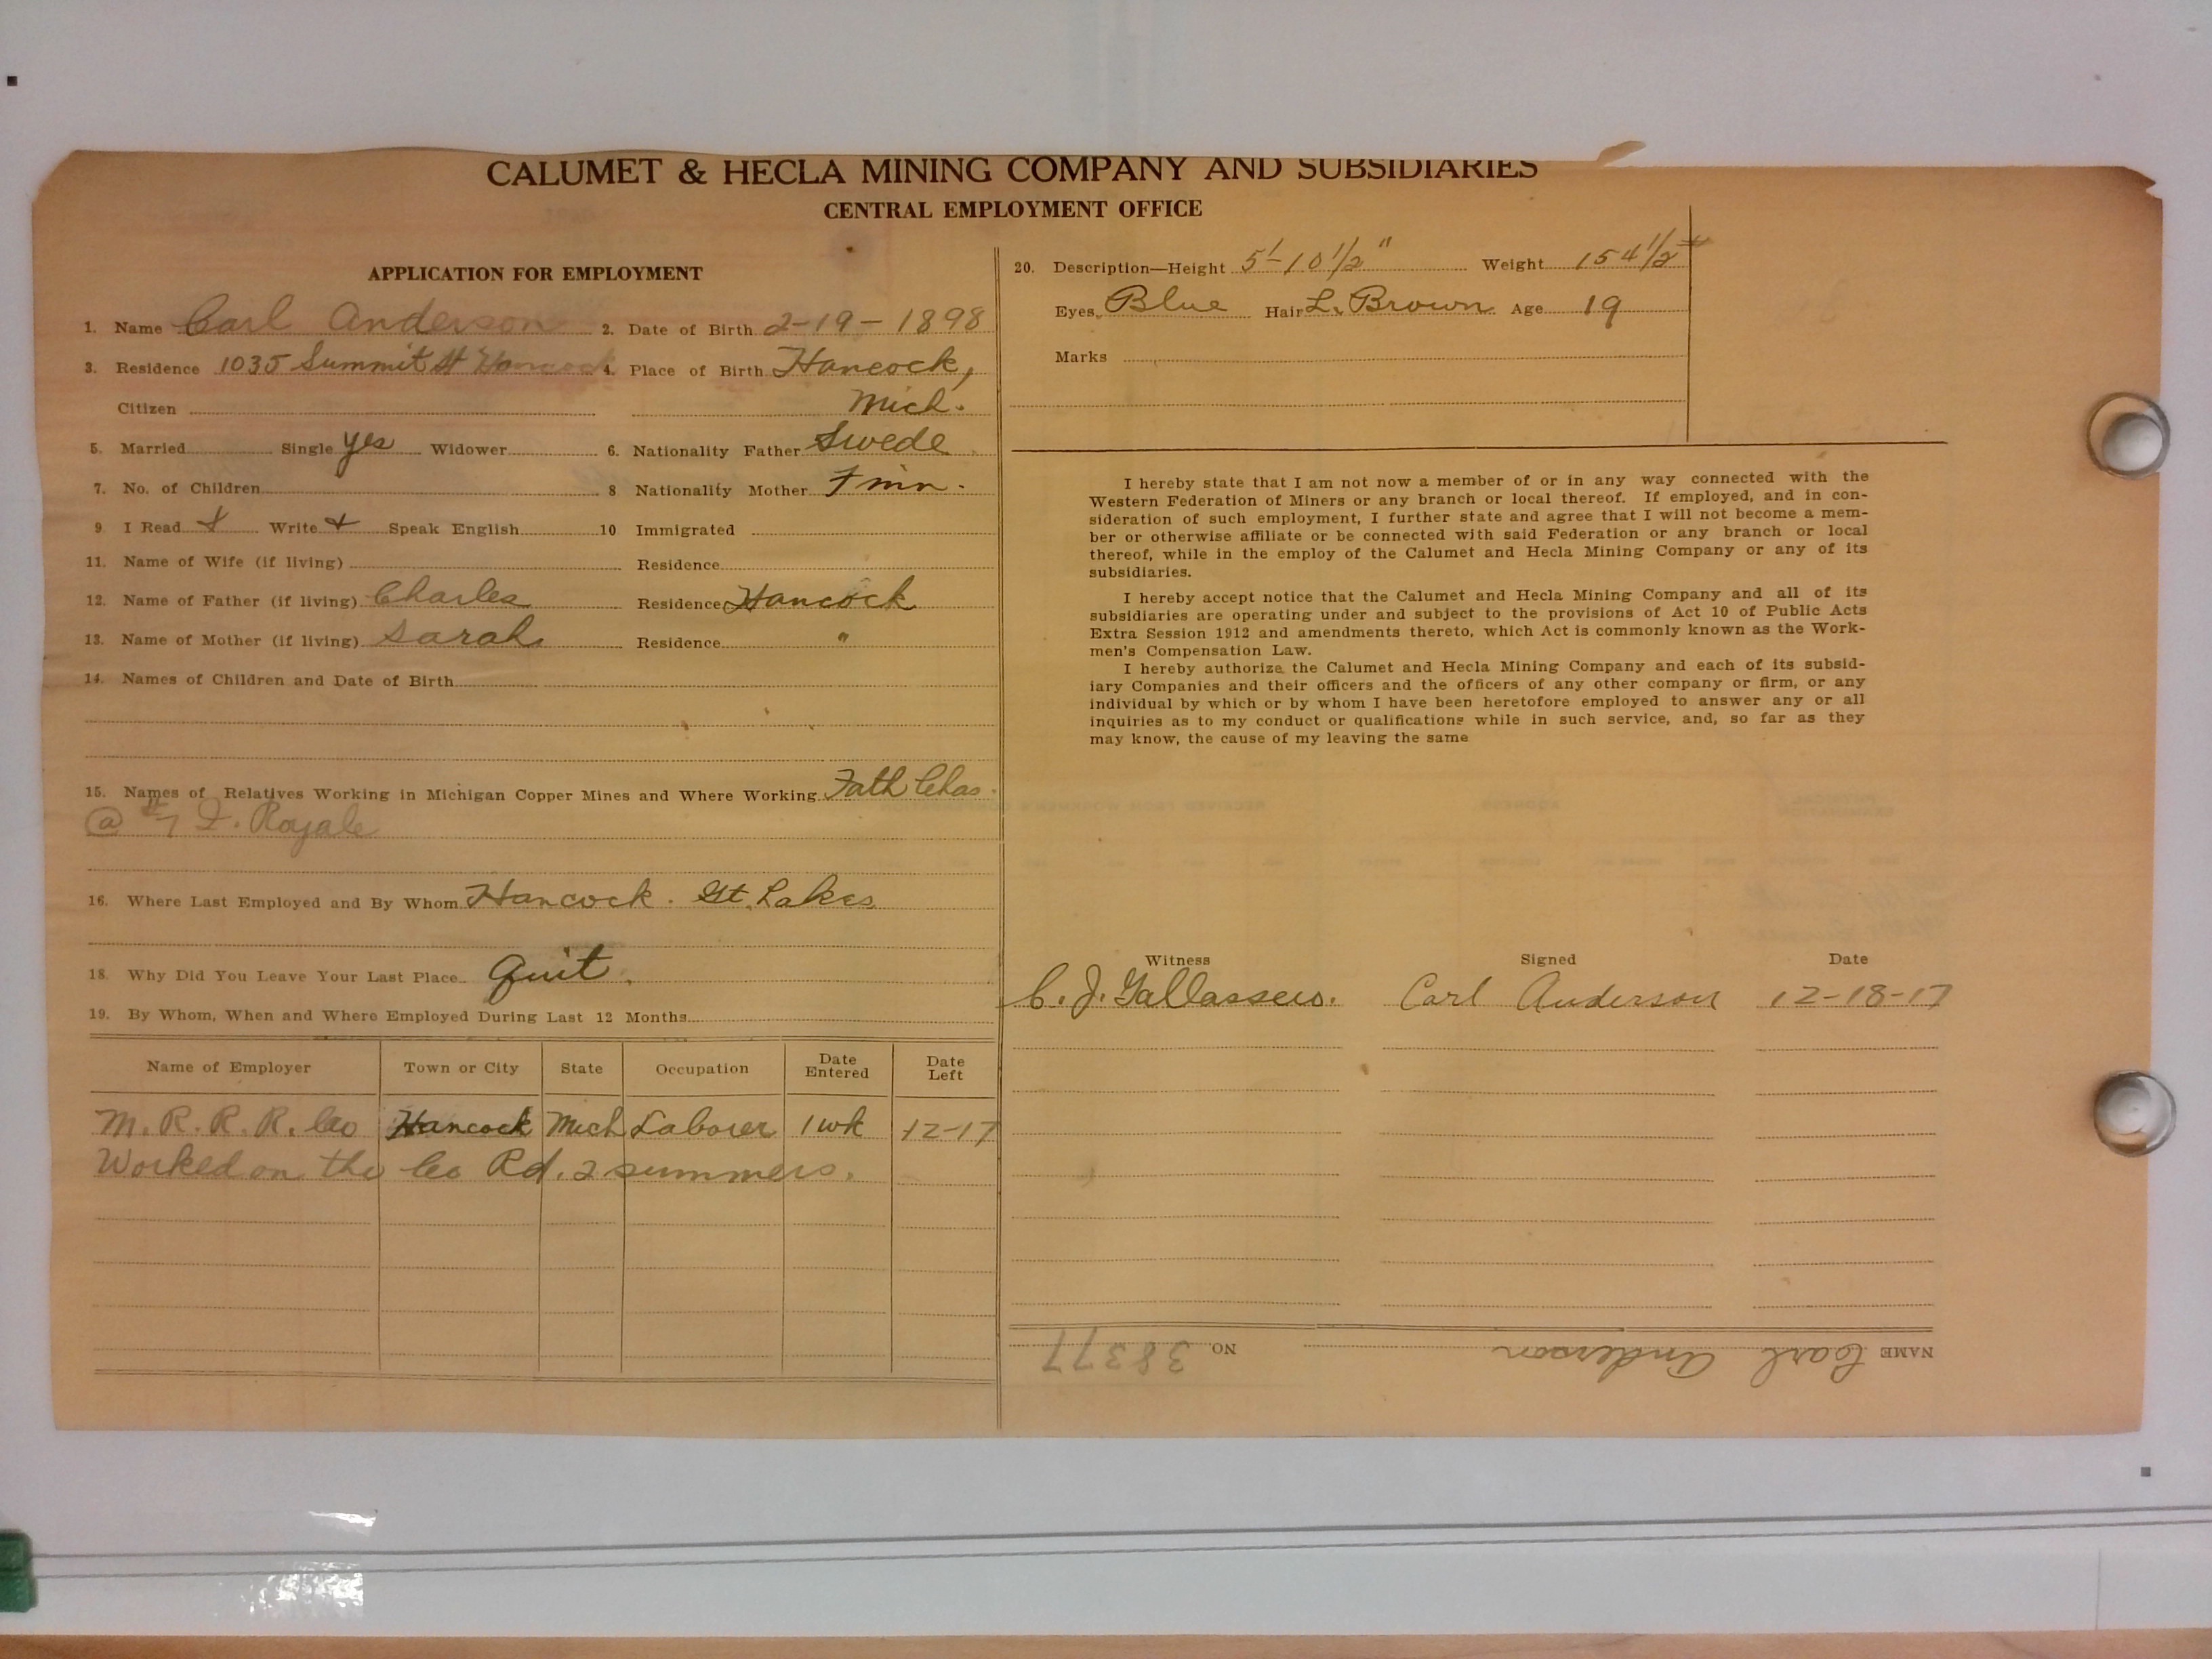 CALUMET & HECLA MINING COMPANY AND SUBSIDIARIES
CENTRAL EMPLOYMENT OFFICE
APPLICATION FOR EMPLOYMENT
1. Name Carl Anderson 2. Date of Birth 2-19-1898
3. Residence 1035 Summit St Hancock 4. Place of Birth Hancock,
Citizen Mich.
5. Married Single yes Widower 6. Nationality Father Swede
7. No. of Children 8 Nationality Mother Finn.
9 I Read Write Speak English 10 Immigrated
11. Name of Wife (if living) Residence
12. Name of Father (if living) Charles Residence Hancock
13. Name of Mother (if living) Sarah Residence "
14. Names of Children and Date of Birth
15. Names of Relatives Working in Michigan Copper Mines and Where Working Fath Chas.
@ #7 I. Royale
16. Where Last Employed and By Whom Hancock. Gt. Lakes
18. Why Did You Leave Your Last Place Quit.
19. By Whom, When and Where Employed During Last 12 Months
Name of Employer Town or City State Occupation Date Entered Date Left
M. R. R. R. Co Hancock Mich Laborer 1 wk 12-17
Worked on the Co Rd. 2 summers.
20. Description—Height 5'-10 1/2" Weight 154 1/2 #
Eyes Blue Hair L. Brown Age 19
Marks
I hereby state that I am not now a member of or in any way connected with the
Western Federation of Miners or any branch or local thereof. If employed, and in con-
sideration of such employment, I further state and agree that I will not become a mem-
ber or otherwise affiliate or be connected with said Federation or any branch or local
thereof, while in the employ of the Calumet and Hecla Mining Company or any of its
subsidiaries.
I hereby accept notice that the Calumet and Hecla Mining Company and all of its
subsidiaries are operating under and subject to the provisions of Act 10 of Public Acts
Extra Session 1912 and amendments thereto, which Act is commonly known as the Work-
men's Compensation Law.
I hereby authorize the Calumet and Hecla Mining Company and each of its subsid-
iary Companies and their officers and the officers of any other company or firm, or any
individual by which or by whom I have been heretofore employed to answer any or all
inquiries as to my conduct or qualifications while in such service, and, so far as they
may know, the cause of my leaving the same
Witness Signed Date
C. J. Carl Anderson 12-18-17
NAME Carl Anderson NO 38377